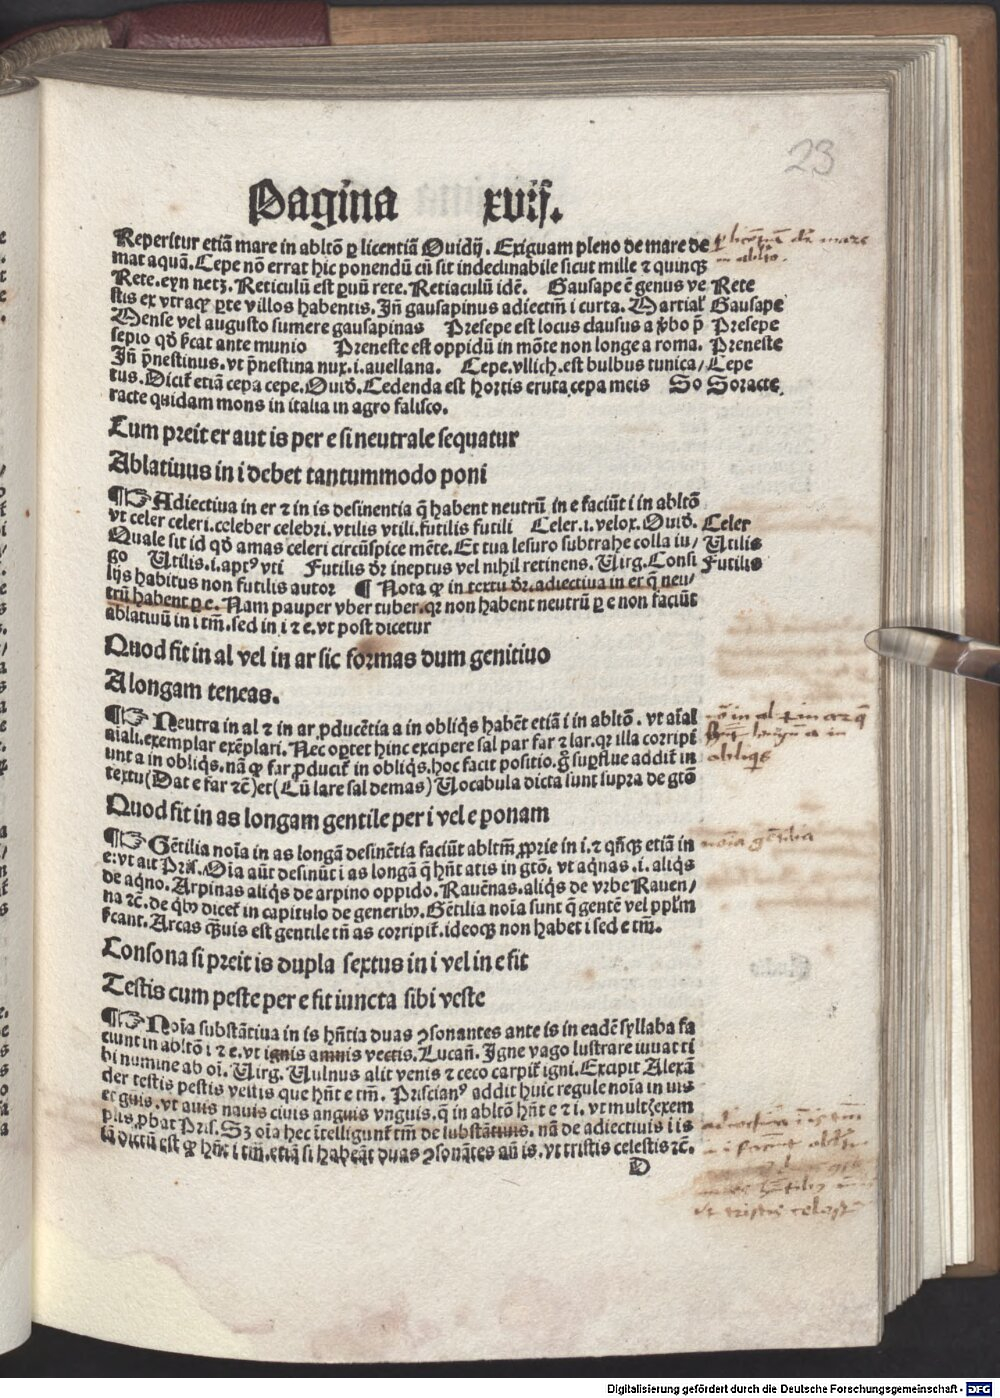 23
Pagina xvij.
Reperitur etiā mare in abltō ꝑ licentiā Ouidij. Exiguam pleno de mare de
mat aquā. Cepe nō errat hic ponendū cū sit indeclinabile sicut mille ⁊ quinqꝫ
Rete. eyn netz. Reticulū est ꝑuū rete. Retiaculū idē. Gausape ē genus ve Rete
stis ex vtraqꝫ ꝑte villos habentis. Jñ gausapinus adiectm̄ i curta. Martial̕ Gausape
Mense vel augusto sumere gausapinas Presepe est locus clausus a ꝟbo p̄ Presepe
sepio qd̕ ſ̕cat ante munio Preneste est oppidū in mōte non longe a roma. Preneste
Jñ p̄nestinus. vt p̄nestina nux .i. auellana. Cepe. vllich. est bulbus tunica/ Cepe
tus. Dicit̕ etiā cepa cepe. Ouid̕. Cedenda est hortis eruta cepa meis So Soracte.
racte quidam mons in italia in agro falisco.
Cum preit er aut is per e si neutrale sequatur
Ablatiuus in i debet tantummodo poni
¶ Adiectiua in er ⁊ in is desinentia q̄ habent neutrū in e faciūt i in abltō
vt celer celeri. celeber celebri. vtilis vtili. futilis futili Celer .i. velox. Ouid̕. Celer
Quale sit id qd̕ amas celeri circūspice mēte. Et tua lesuro subtrahe colla iu/ Utilis
go Utilis .i. aptꝰ vti Futilis dr̄ ineptus vel nihil retinens. Uirg. Consi Futilis
lijs habitus non futilis autor ¶ Nota qꝫ in textu dr̄. adiectiua in er q̄ neu/
trū habent ꝑ e. Nam pauper vber tuber. qꝛ non habent neutrū ꝑ e non faciūt
ablatiuū in i tm̄. sed in i ⁊ e. vt post dicetur
Quod fit in al vel in ar sic formas dum genitiuo
A longam teneas.
¶ Neutra in al ⁊ in ar ꝓducētia a in obliqs habēt etiā i in abltō. vt aīal
aīali. exemplar exēplari. Nec oꝑtet hinc excipere sal par far ⁊ lar. qꝛ illa corripi
unt a in obliqs. nā qꝫ far ꝓducit̕ in obliqs. hoc facit positio. g̊ suꝑflue addit̕ in
textu (Dat e far ⁊c̄) et (Cū lare sal demas) Uocabula dicta sunt supra de gtō
Quod fit in as longam gentile per i vel e ponam
¶ Gētilia noīa in as longā desinētia faciūt abltm̄ ꝓprie in i. ⁊ qn̄qꝫ etiā in
e. vt ait Pris̄. Oīa aūt desinūt i as longā q̄ hn̄t atis in gtō. vt aqnas .i. aliqs
de aqno. Arpinas aliqs de arpino oppido. Rauēnas. aliqs de vrbe Rauen/
na ⁊c̄. de qbꝰ dicet̕ in capitulo de generibꝰ. Gētilia noīa sunt q̄ gentē vel ppl̄m
ſ̕cant. Arcas qꝫuis est gentile tn̄ as corripit̕. ideoqꝫ non habet i sed e tm̄.
Consona si preit is dupla sextus in i vel in e fit
Testis cum peste per e fit iuncta sibi veste
¶ Noīa substātiua in is hn̄tia duas ꝯsonantes ante is in eadē syllaba fa
ciunt in abltō i ⁊ e. vt ignis amnis vectis. Lucan̄. Jgne vago lustrare iuuat ti
bi numine ab oī. Uirg. Uulnus alit venis ⁊ ceco carpit̕ igni. Excipit Alexā
der testis pestis vestis que hn̄t e tm̄. Priscianꝰ addit huic regule noīa in uis
et guis. vt auis nauis ciuis anguis vnguis. q̄ in abltō hn̄t e ⁊ i. vt mult⁊ exem
plis ꝓbat Pris̄. Sꝫ oīa hec ītelligunt̕ tm̄ de substātiuis. nā de adiectiuis i is
iā dictū est qꝫ hn̄t i tm̄. etiā si habeāt duas ꝯsonātes an̄ is. vt tristis celestis ⁊c̄.
D
Digitalisierung gefördert durch die Deutsche Forschungsgemeinschaft - DFG